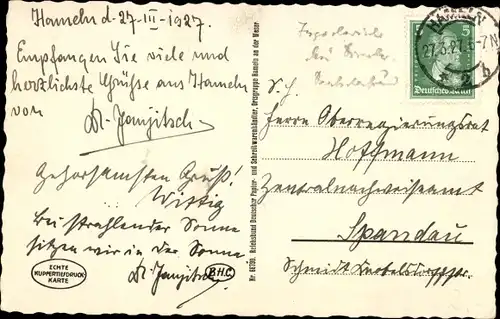 Hameln d. 27-III-1927.
Empfangen Sie viele und
herzlichste Grüsse aus Hameln
von
Gehorsamsten Gruß!
Wittig
Bei strahlender Sonne
sitzen wir in der Sonne.
ECHTE
KUPFERTIEFDRUCK
KARTE
B.H.C.
Reichsbund Deutscher Papier- und Schreibwarenhändler, Ortsgruppe Hameln an der Weser
HAMELN
27.3.27. 6-7N
* 2 b
5 5
Deutsches Reich
S. H.
Herrn Oberregierungsrat
Hoffmann
Zentralnachweiseamt
Spandau
Schmidt Knobelsdorffstr.